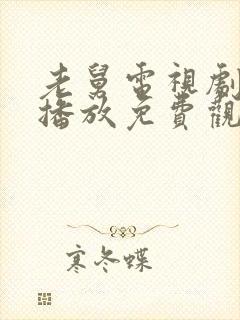 老舅電視劇
播放免費觀
寒冬蝶